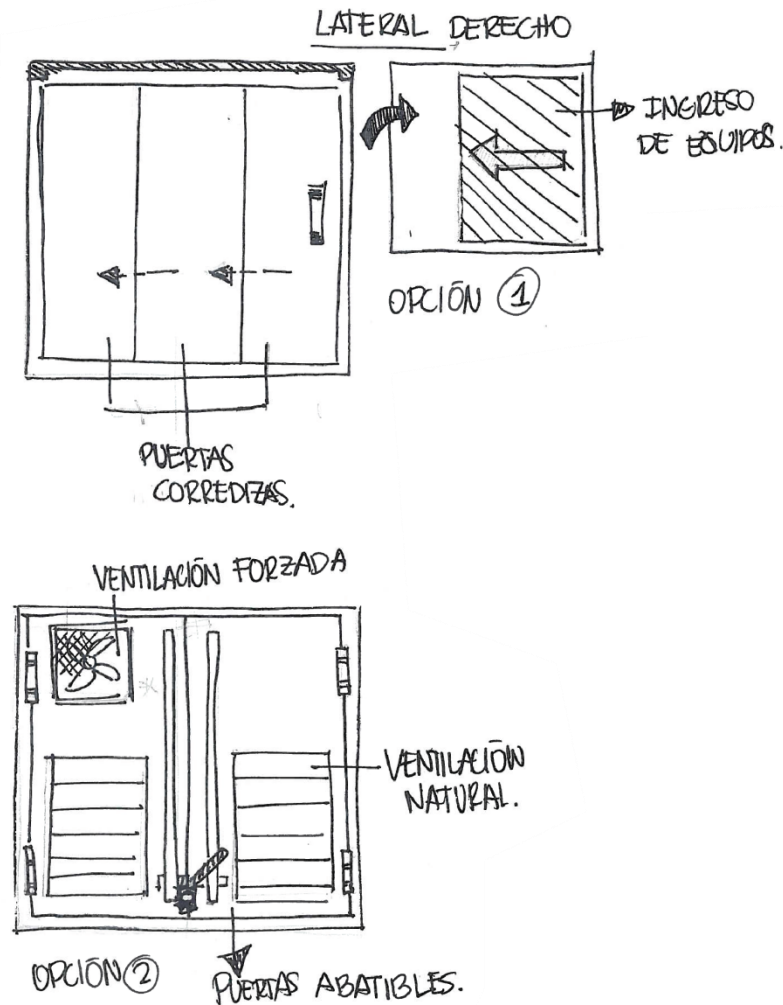 LATERAL DERECHO
INGRESO
DE EQUIPOS.
OPCIÓN 1
PUERTAS
CORREDIZAS.
VENTILACIÓN FORZADA
VENTILACIÓN
NATURAL.
OPCIÓN 2
PUERTAS ABATIBLES.